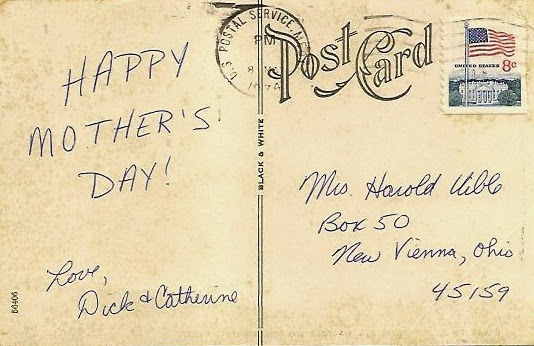 HAPPY
MOTHER'S
DAY!
Love,
Dick & Catherine
B6406
BLACK & WHITE
U.S. POSTAL SERVICE
PM
8
1974
Post Card
UNITED STATES 8c
Mrs. Harold Uible
Box 50
New Vienna, Ohio
45159